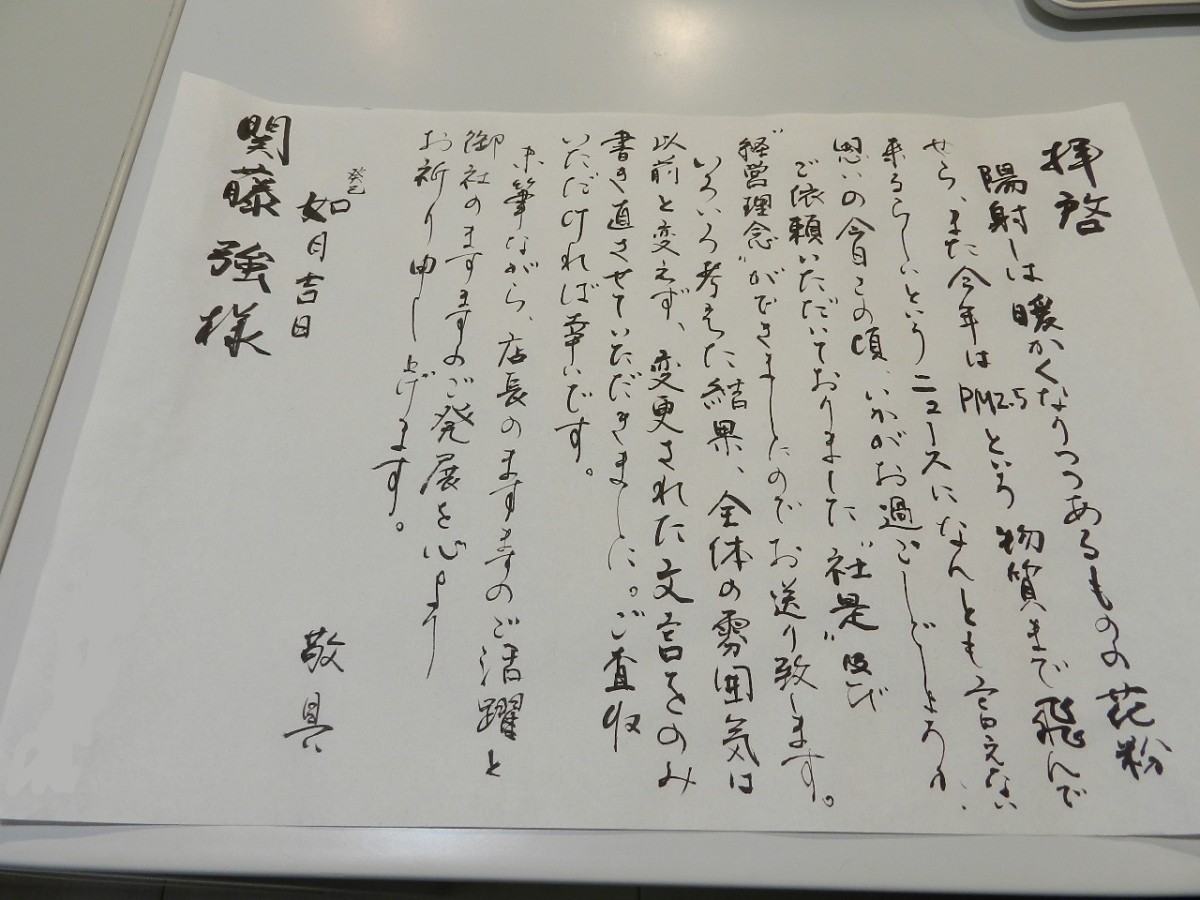 拝啓
陽射しは暖かくなりつつあるものの花粉
やら、また今年はPM2.5という物質まで飛んで
来るらしいというニュースになんとも言えない
思いの今日この頃、いかがお過ごしでしょうか、
ご依頼いただいておりました"社是"及び
"経営理念"ができましたのでお送り致します。
いろいろ考えた結果、全体の雰囲気は
以前と変えず、変更された文言をのみ
書き直させていただきました。ご査収
いただければ幸いです。
末筆ながら、店長のますますのご活躍と
御社のますますのご発展を心より
お祈り申し上げます。
敬具
癸巳 如月吉日
関藤強様